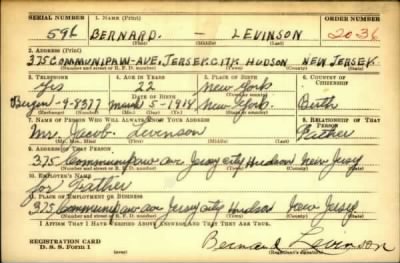 SERIAL NUMBER 1. NAME (Print) ORDER NUMBER
596 BERNARD. — LEVINSON 2036
(First) (Middle) (Last)
2. ADDRESS (Print)
375 COMMUNIPAW-AVE, JERSEY. CITY HUDSON NEW JERSEY
(Number and street or R. F. D. number) (Town) (County) (State)
3. TELEPHONE 4. AGE IN YEARS 5. PLACE OF BIRTH 6. COUNTRY OF CITIZENSHIP
22 New York
DATE OF BIRTH
Bergen-9-8377 March 5-1918 New York. Birth
(Exchange) (Number) (Mo.) (Day) (Yr.) (State or country)
7. NAME OF PERSON WHO WILL ALWAYS KNOW YOUR ADDRESS 8. RELATIONSHIP OF THAT PERSON
Mr. Jacob. Levenson Father
(Mr., Mrs., Miss) (First) (Middle) (Last)
9. ADDRESS OF THAT PERSON
375 Communipaw ave Jersey city Hudson New Jersey
(Number and street or R. F. D. number) (Town) (County) (State)
10. EMPLOYER'S NAME
for Father
11. PLACE OF EMPLOYMENT OR BUSINESS
375 Communipaw ave Jersey city Hudson New Jersey
(Number and street or R. F. D. number) (Town) (County) (State)
I AFFIRM THAT I HAVE VERIFIED ABOVE ANSWERS AND THAT THEY ARE TRUE.
REGISTRATION CARD
D. S. S. Form 1 (over) Bernard Levinson
(Registrant's signature)